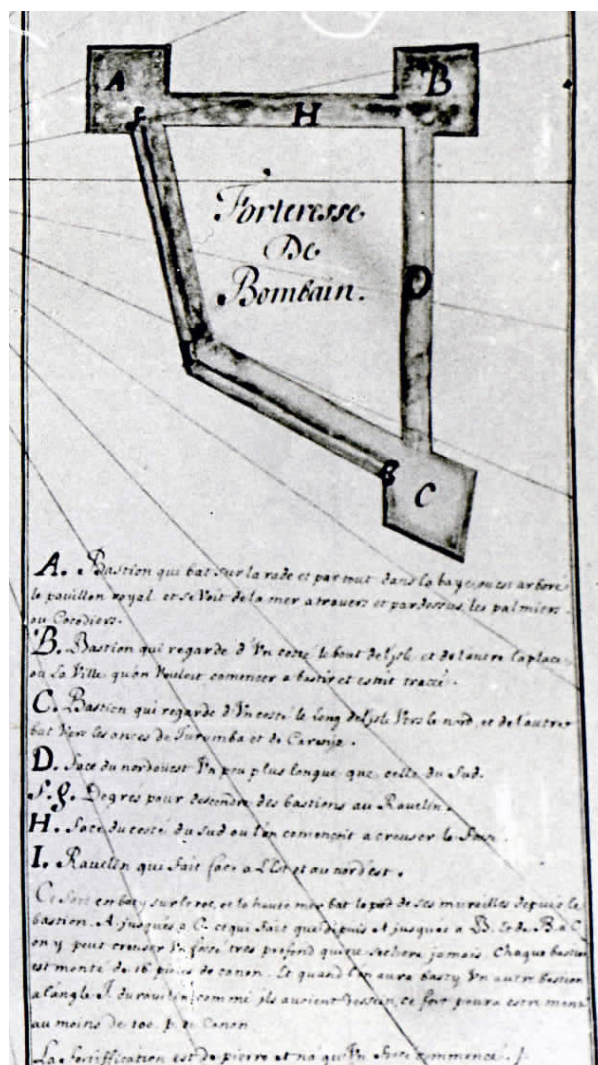 A
B
f
H
Forteresse
De
Bombain.
D
I
g
C
A. Bastion qui bat sur la rade et par tout dans la baye, ou est arboré
le pavillon royal et se voit de la mer a travers et pardessus les palmiers
ou Cocodiers.
B. Bastion qui regarde d'Vn costé le bout de l'isle et de l'autre la place
ou la Ville qu'on Vouloit comencer a bastir et estoit tracée.
C. Bastion qui regarde d'Vn costé le long de l'isle Vers le nord, et de l'autre
bat Vers les ances de et de
D. face du nordouest Vn peu plus longue que celle du Sud.
f. g. Degrés pour descendre des bastions au Ravelin.
H. face du costé du sud ou l'on comencoit a creuser le fossé.
I. Ravelin qui fait face a L'Est et au nord'est.
Ce fort en basty sur le roc, et la haute mer bat le pied de ses murailles depuis le
bastion A jusques a C. ce qui fait que depuis A jusques a B. et de B. a C
on y peut creuser Vn fossé tres profond qui ne sechera jamais. Chaque bastion
est monté de 16 pieces de canon. Et quand l'on aura basty Vn autre bastion
a l'angle I du ravelin comme ils avoient dessein, ce fort poura estre monté
au moins de 100. p. de Canon.
La fortiffication est de pierre et n'a qu'Vn fossé commencé.